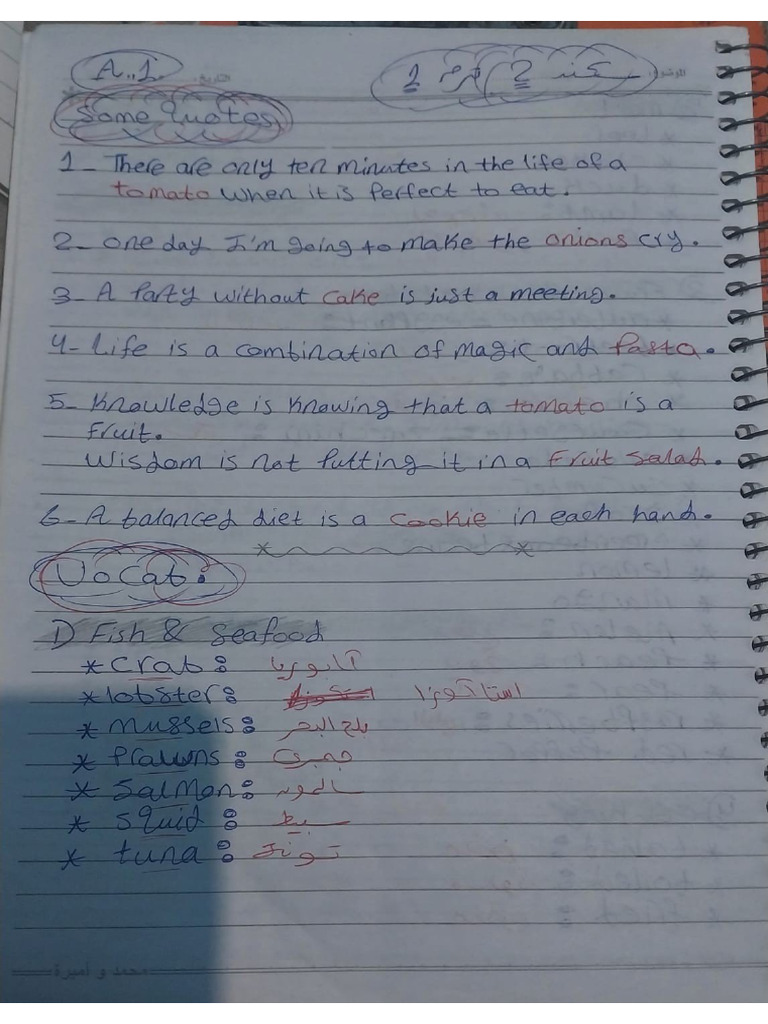 A.1. التاريخ: الموضوع: سكند 2 ترم 1
Some Quotes
1- There are only ten minutes in the life of a
tomato when it is perfect to eat.
2- one day I'm going to make the onions cry.
3- A Party without cake is just a meeting.
4- Life is a combination of magic and Pasta.
5- Knowledge is knowing that a tomato is a
fruit.
Wisdom is not putting it in a fruit salad.
6- A balanced diet is a cookie in each hand.
Vocab:
1) Fish & Seafood
* crab: كابوريا
* lobster: استاكوزا
* mussels: بلح البحر
* Prawns: جمبري
* Salmon: سالمون
* squid: سبيط
* tuna: تونة
محمد و أميرة